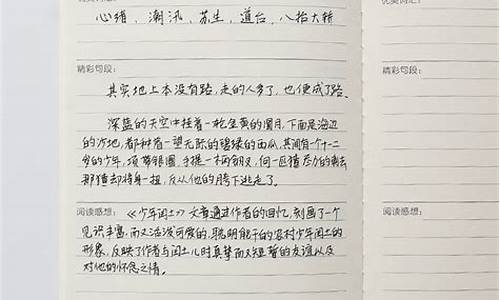 心绪、潮汛、苏生、道台、八抬大轿
精彩句段：
其实地上本没有路，走的人多了，也便成了路。
深蓝的天空中挂着一轮金黄的圆月，下面是海边
的沙地，都种着一望无际的碧绿的西瓜，其间有一个十二
岁的少年，项带银圈，手捏一柄钢叉，向一匹猹尽力的刺去
那猹却将身一扭，反从他的胯下逃走了。
阅读感想：
《少年闰土》文章通过作者的回忆，刻画了一个
见识丰富，而又活泼可爱的，聪明能干的农村少年闰土的
形象，反映了作者与闰土儿时真挚而又短暂的友谊以及
对他的怀念之情。
精彩句段：
阅读感想：